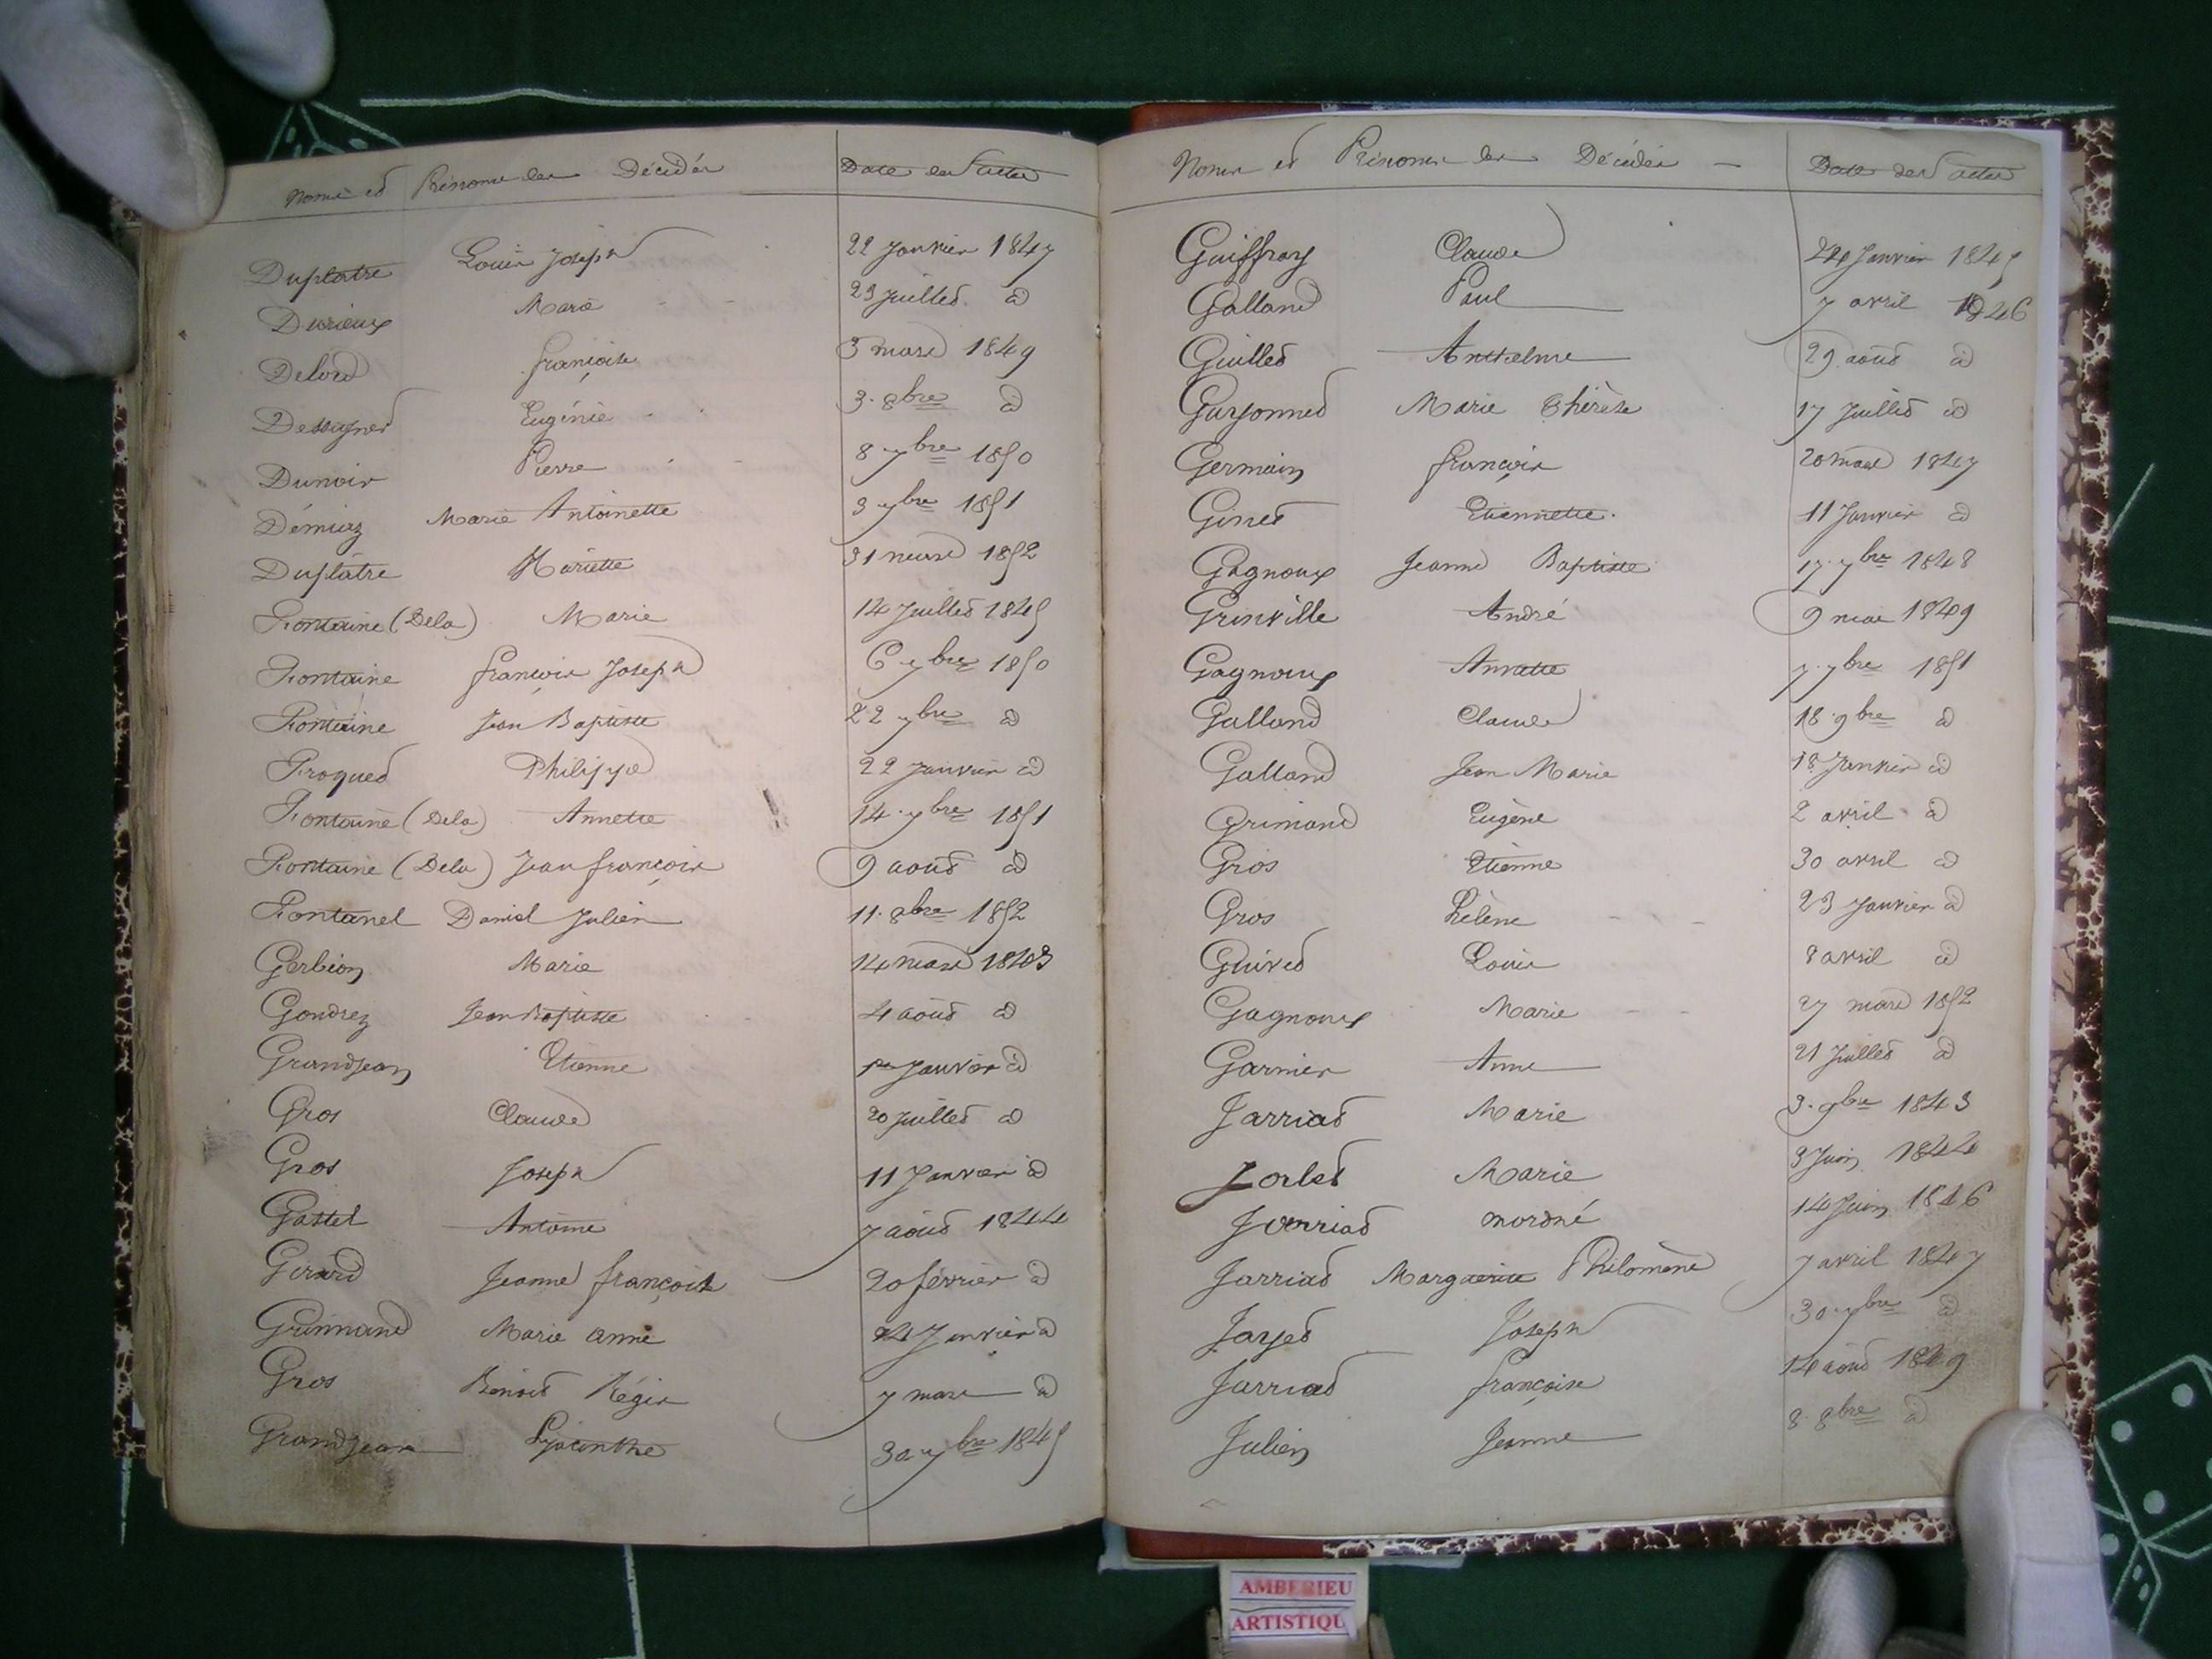 Noms et Prénoms des Décédés Date des actes
Duplatre Louis Joseph 22 Janvier 1847
Durieux Marie 23 Juillet d
Delord françoise 3 mars 1849
Dessaignes Eugénie 3. 8bre d
Dunoir Pierre 8 7bre 1850
Démiaz Marie Antoinette 3 7bre 1851
Duplâtre Mariette 31 mars 1852
Fontaine (Dela) Marie 14 Juillet 1845
Fontaine françois Joseph 6 7bre 1850
Fontaine Jean Baptiste 22 7bre d
Froquet Philippe 22 Janvier d
Fontaine (Dela) Annette 14. 7bre 1851
Fontaine (Dela) Jean françois 9 août d
Fontanel Daniel Julien 11. 8bre 1852
Gerbion Marie 14 mars 1843
Gondrez Jean Baptiste 4 août d
Grandjean Etienne 1er Janvier d
Gros Claude 20 Juillet d
Gros Joseph 11 Janvier d
Gastel Antoine 7 août 1844
Girard Jeanne françoise 20 février d
Grimand Marie anne 24 Janvier d
Gros Benoit Régis 7 mars d
Grandjean Hyacinthe 30 7bre 1845
Noms et Prénoms des Décédés Date des actes
Guiffray Claude Janvier 1845
Galland Paul 7 avril 1846
Guillet Anthelme 29 août d
Guyonnet Marie Thérèse 17 Juillet d
Germain françois 20 mars 1847
Ginet Etiennette. 11 Janvier d
Gagnoux Jeanne Baptiste 17. 7bre 1848
Grinville André 9 mai 1849
Gagnoux Annette 7. 7bre 1851
Galland Claude 18. 9bre d
Galland Jean Marie 18 Janvier d
Grimand Eugène 2 avril d
Gros Etienne 30 avril d
Gros hélène 23 Janvier d
Guivet Louis 8 avril d
Gagnoux Marie 27 mars 1852
Garnier Anne 21 Juillet d
Jarriat Marie 3. 9bre 1843
Jolet Marie 3 Juin 1844
Jarriat mordné 14 Juin 1846
Jarriat Marguerite Philomène 7 avril 1847
Jayet Joseph 30 7bre d
Jarriat françoise 14 août 1849
Julien Jeanne 8. 8bre d
AMBERIEU
ARTISTIQU